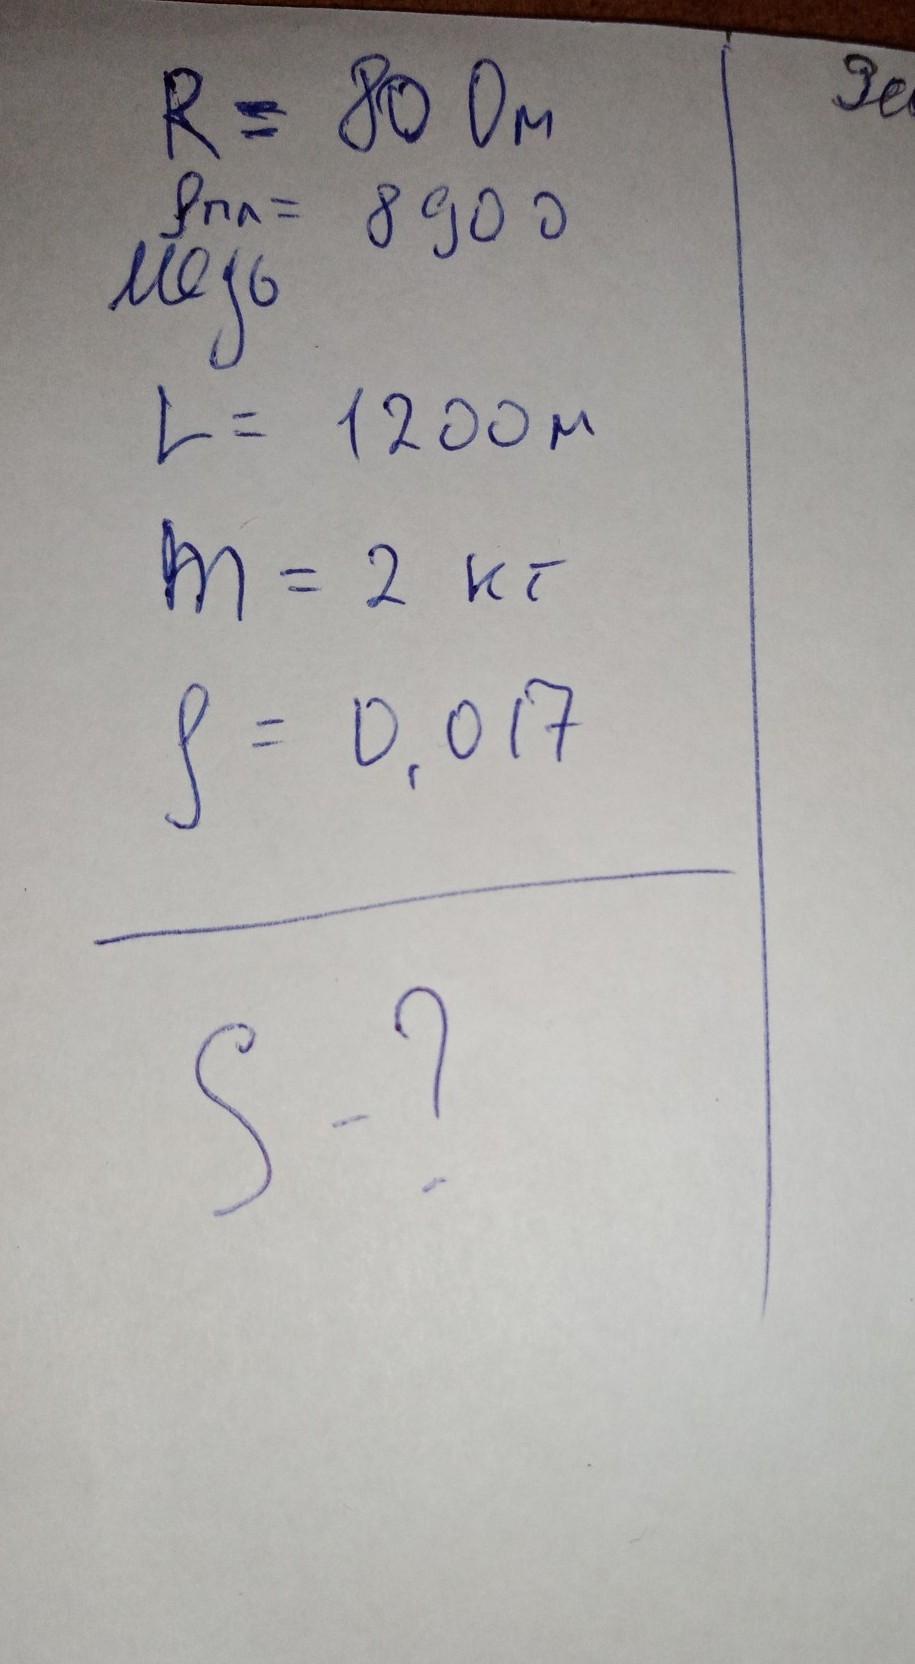 R = 80 Ом
ρпл = 8900
Медь
L = 1200м
m = 2 кг
ρ = 0,017
S - ?